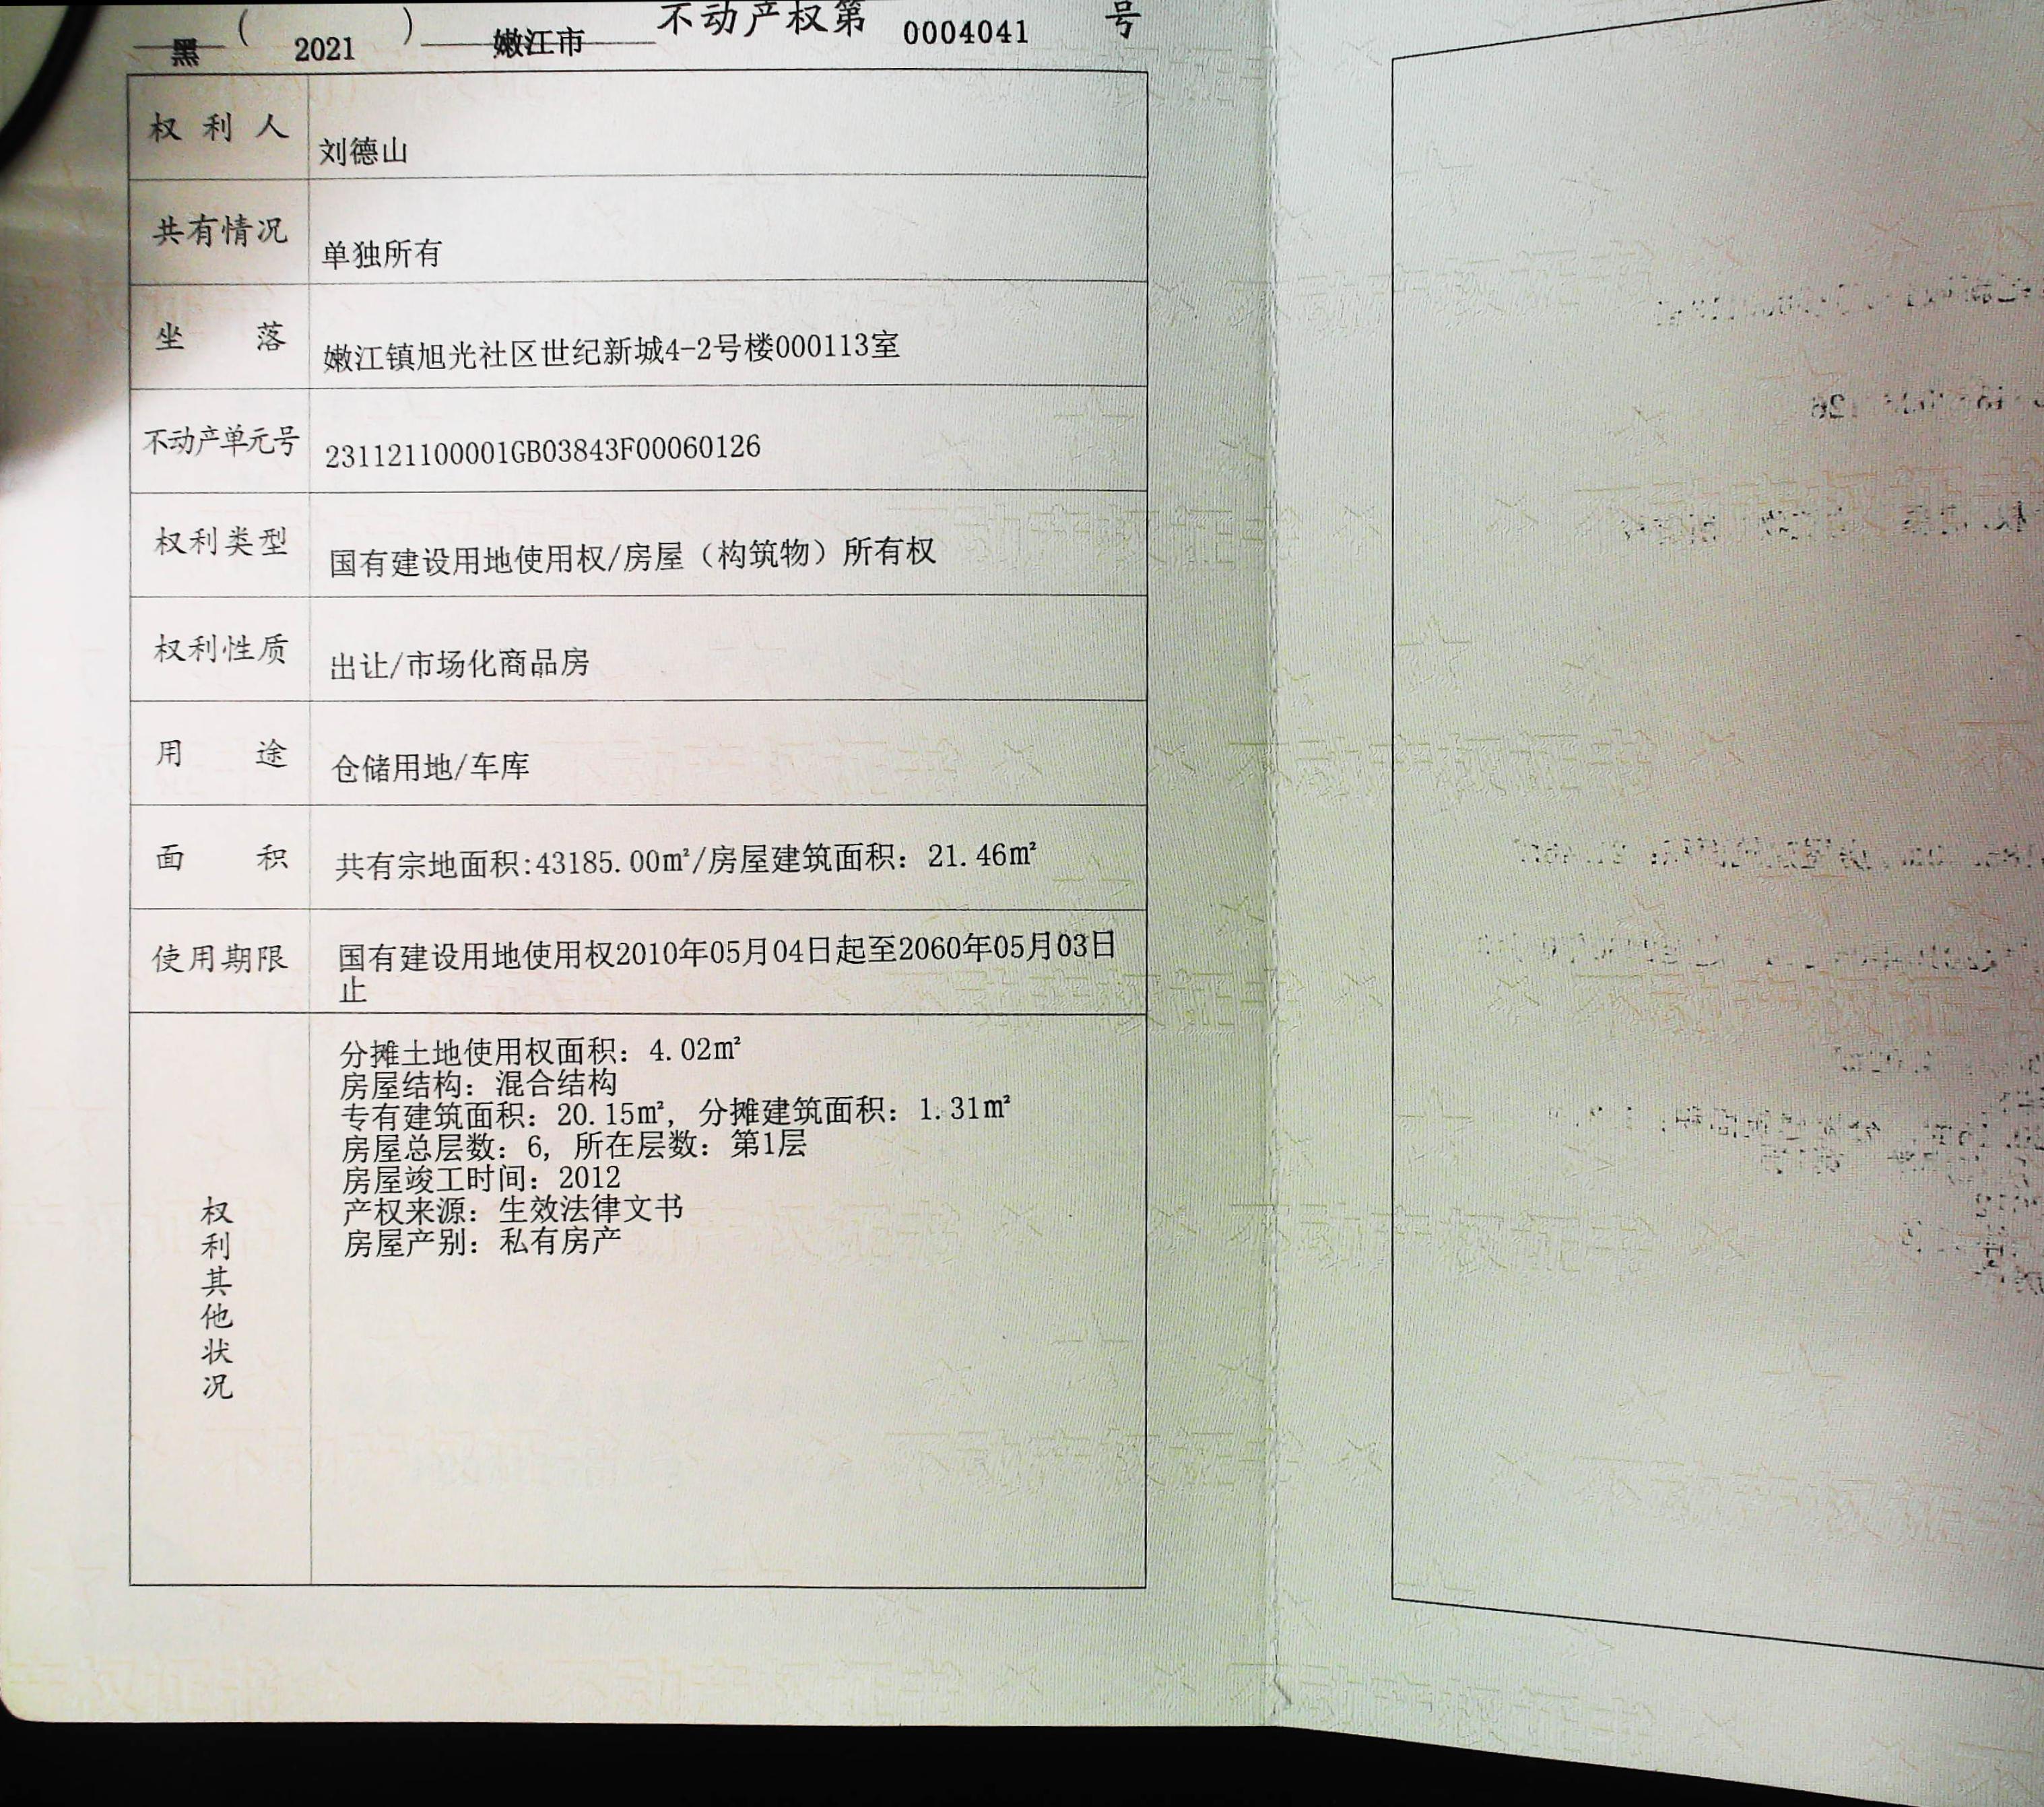 黑（2021）嫩江市不动产权第0004041号
权利人 刘德山
共有情况 单独所有
坐落 嫩江镇旭光社区世纪新城4-2号楼000113室
不动产单元号 231121100001GB03843F00060126
权利类型 国有建设用地使用权/房屋（构筑物）所有权
权利性质 出让/市场化商品房
用途 仓储用地/车库
面积 共有宗地面积:43185.00㎡/房屋建筑面积：21.46㎡
使用期限 国有建设用地使用权2010年05月04日起至2060年05月03日
止
权利其他状况
分摊土地使用权面积：4.02㎡
房屋结构：混合结构
专有建筑面积：20.15㎡，分摊建筑面积：1.31㎡
房屋总层数：6，所在层数：第1层
房屋竣工时间：2012
产权来源：生效法律文书
房屋产别：私有房产